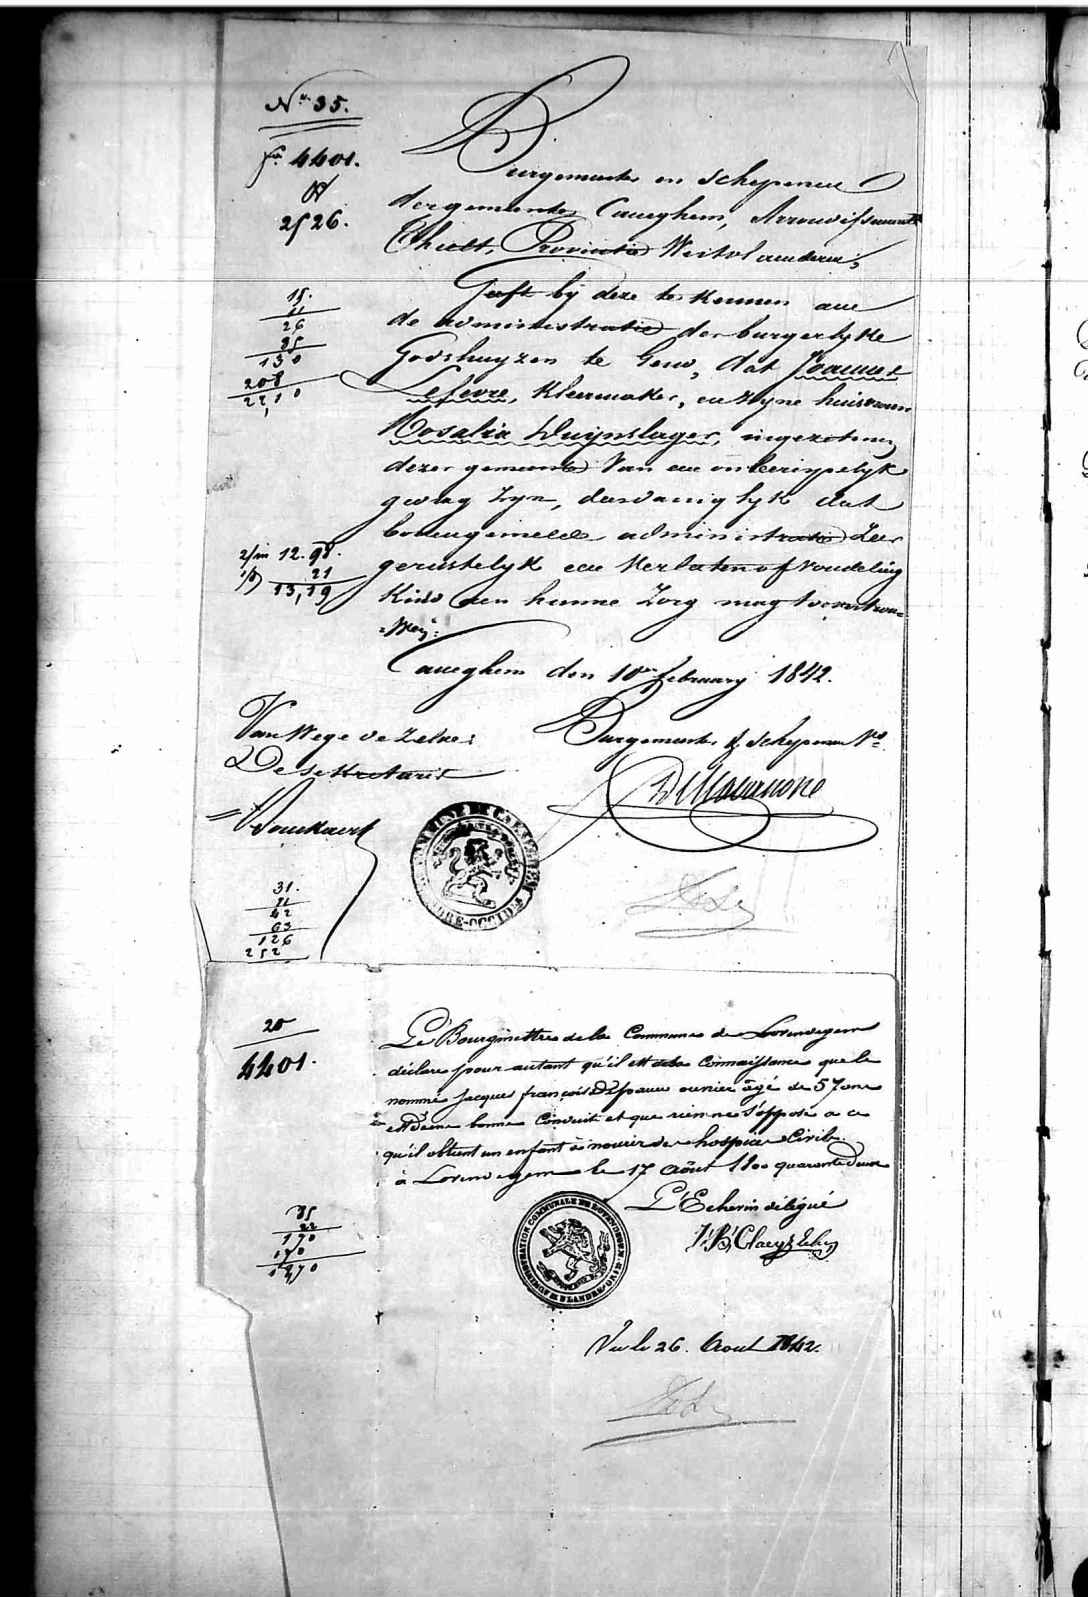 N° 35.
f° 4401.
2526.
Burgemeester en Schepenen
der gemeente Caneghem, Arrondissement
Thielt, Provintie Westvlaenderen;
Geeft bij deze te kennen aen
de administratie der burgerlyke
Godshuyzen te Gend, dat Joannes
Lefevre, Kleermaker, en zyne huisvrouw
Rosalia Duijnslager, ingezetenen
dezer gemeente van een onberispelyk
gedrag zyn, dusdaniglyk dat
bovengemelde administratie zeer
gerustelyk een verlaten of vondeling
Kind aen hunne zorg mag toevertrou-
-wen:
Caneghem den 10en february 1842.
15.
11
26
85
130
208
22,10
2/m 12.98.
21
13,19
Van Wege de Zelve:
De Sekretaris
Burgemeester & Schepenen
COMMUNE DE CANEGHEM
FLANDRE-OCCIDE
31.
11
42
63
126
252
20
4401.
Le Bourgmettre de la Commune de Lovendegem
déclare pour autant qu'il est de sa connaissance que le
nommé Jacques françois Depauw ouvrier âgé de 57 ans
est d'une bonne conduite et que rien ne s'oppose a ce
qu'il obtient un enfant à nourir de hospice Civile.
à Lovendegem le 17 Août 1800 quarante deux
L'Echevin délégué
J: B: Claeys Echn
85
22
170
170
1870
ADMINISTRATION COMMUNALE DE LOVENDEGEM
FLANDRE ORIE
Vu le 26. Aout 1842.